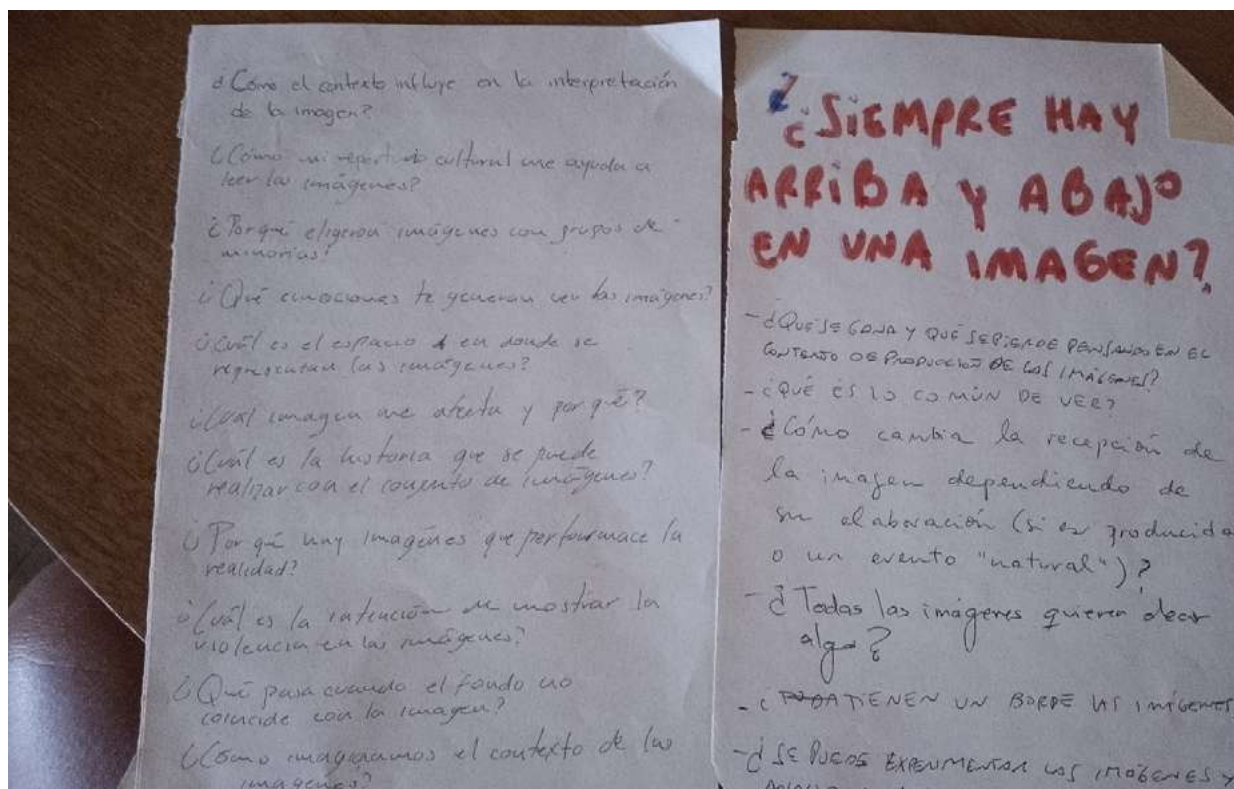 ¿Cómo el contexto influye en la interpretación
de la imagen?
¿Cómo mi repertorio cultural me ayuda a
leer las imágenes?
¿Porqué eligeron imágenes con grupos de
minorías?
¿Qué emociones te generan ver las imágenes?
¿Cuál es el espacio en donde se
representan las imágenes?
¿Cuál imagen me afecta y por qué?
¿Cuál es la historia que se puede
realizar con el conjunto de imágenes?
¿Por qué hay imágenes que perfourmace la
realidad?
¿Cuál es la intención de mostrar la
violencia en las imágenes?
¿Qué pasa cuando el fondo no
coincide con la imagen?
¿Cómo imaginamos el contexto de las
imágenes?
¿SIEMPRE HAY
ARRIBA Y ABAJO
EN UNA IMAGEN?
- ¿QUÉ SE GANA Y QUÉ SE PIERDE PENSANDO EN EL
CONTEXTO DE PRODUCCIÓN DE LAS IMÁGENES?
- ¿QUÉ ES LO COMÚN DE VER?
- ¿Cómo cambia la recepción de
la imagen dependiendo de
su elaboración (si es producida
o un evento "natural")?
- ¿Todas las imágenes quieren decir
algo?
- ¿ TIENEN UN BORDE LAS IMÁGENES
- ¿SE PUEDE EXPERIMENTAR LAS IMÁGENES Y